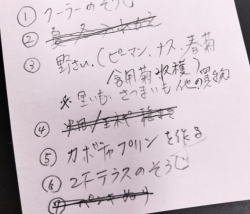 ① クーラーのそうじ
②
③ 野さい(ピーマン、ナス、春菊
食用菊収穫)
※里いも、さつまいも 他の見物
④
⑤ カボチャプリンを作る
⑥ 2Fテラスのそうじ
⑦